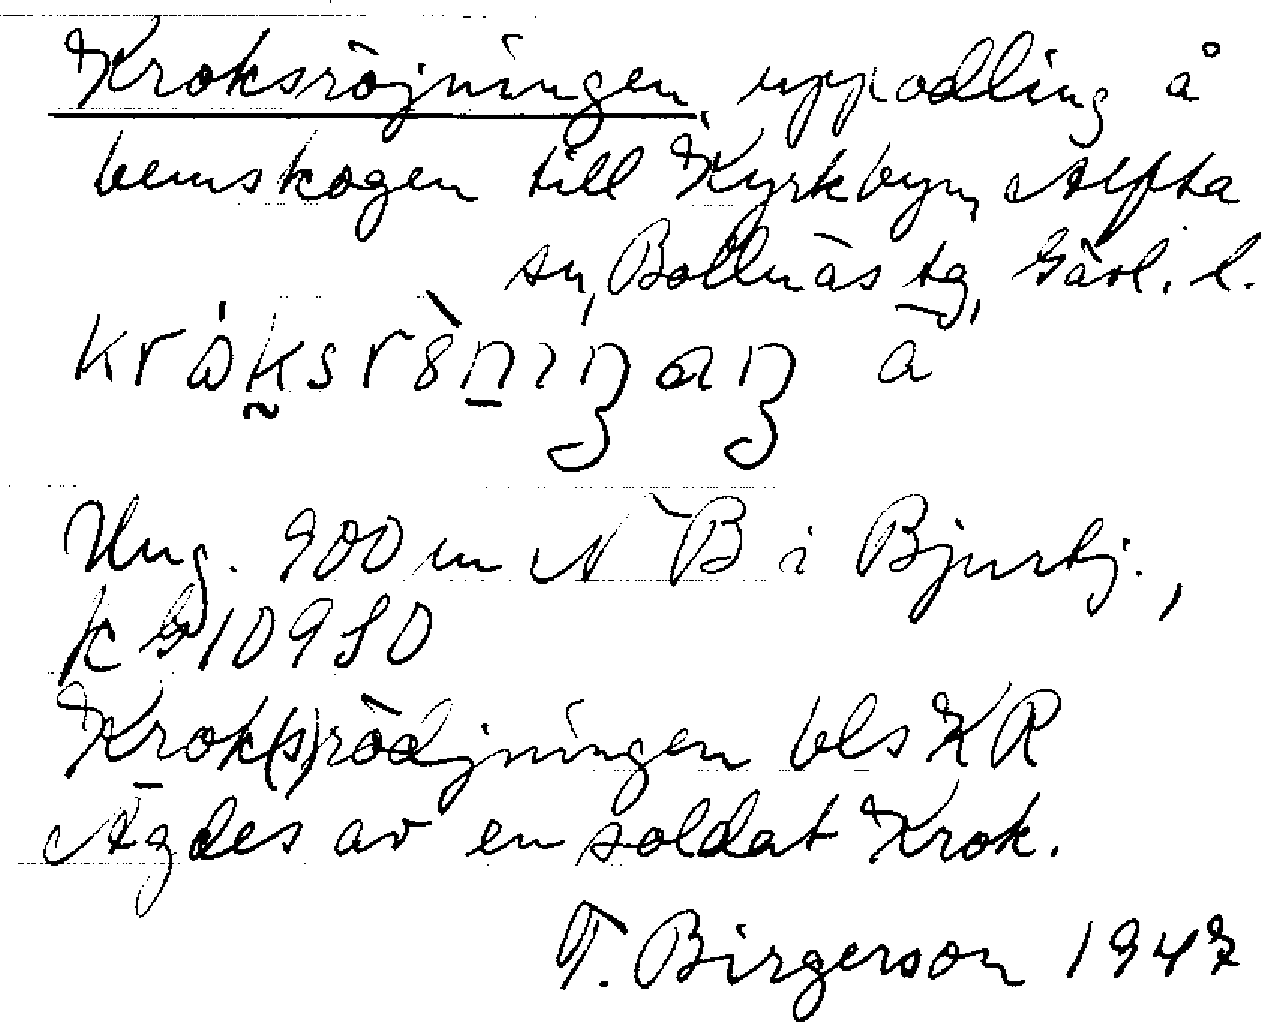 Kroksröjningen, uppodling å
hemskogen till Kyrkbyn, Alfta
sn, Bollnäs tg, Gävl. l.
a
Ung. 900 m N B i Bjurtj.,
k G 10980
Krok(s)rödjningen bls KR
Ägdes av en soldat Krok.
T. Birgerson 1947